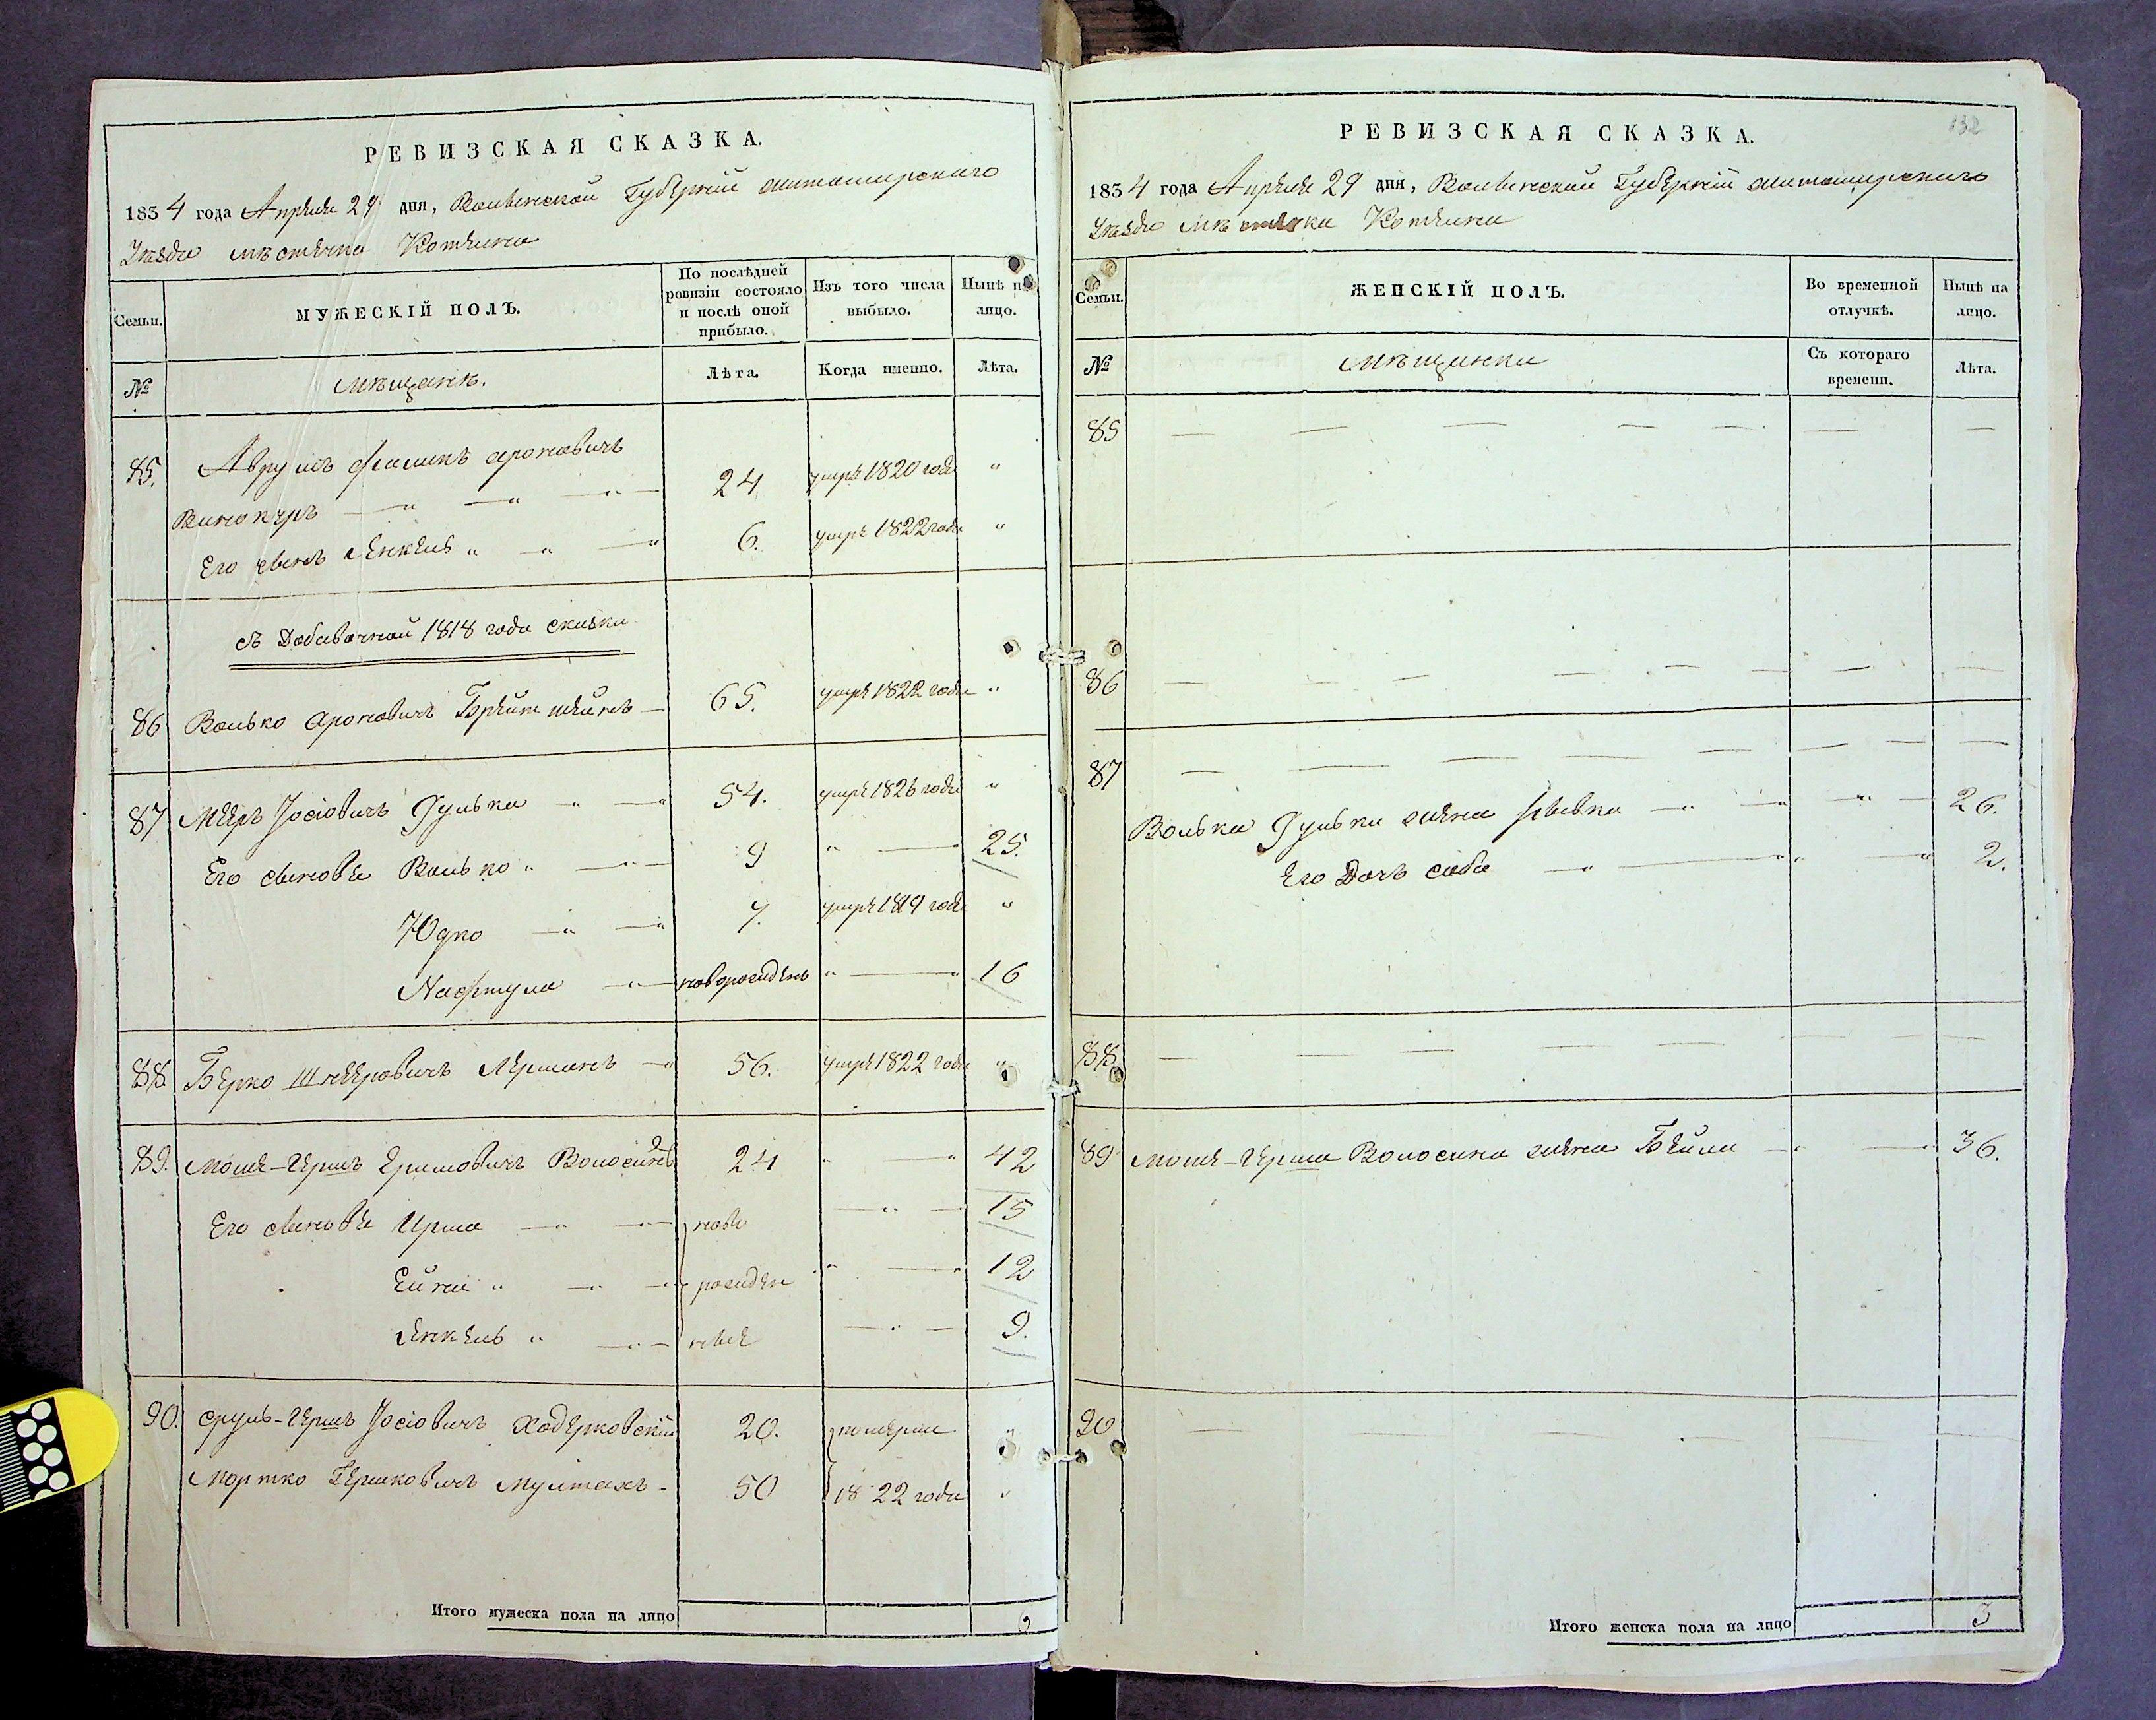 РЕВИЗСКАЯ СКАЗКА.
1834 года Апреля 29 дня, Волынской Губернии Житомирского
Уезда местечка Котельни
Семьи.
МУЖЕСКІЙ ПОЛЪ.
По послѣдней ревизіи состояло и послѣ оной прибыло.
Изъ того числа выбыло.
Нынѣ на лицо.
№
Мѣщанѣ.
Лѣта.
Когда именно.
Лѣта.
85. Аврумъ Файликъ Ароновичъ
Винокуръ 24 умре 1820 года "
Его сынъ Янкель " 6. умре 1822 года "
съ Добавочной 1818 года сказки
86 Волько Ароновичъ Брейтшейнъ 65. умре 1822 года "
87 Мееръ Іосіовичъ Гулька 54. умре 1826 года "
Его сыновье Волько " 9 " 25.
Юдко 7. умре 1819 года "
Нафтула новорожденъ " 16
88 Берко Шнееровичъ Лерманъ 56. умре 1822 года "
89. Мошя-Гершъ Ершовичъ Волосинъ 24 " 42
Его сыновье Ирша ново 15
Ейна " рожден 12
Янкель " ные 9.
90. Сруль-Гершъ Іосіовичъ Ходерковскій 20. померли "
Мортко Гершковичъ Мултахъ 50 1822 года "
Итого мужеска пола на лицо 6
132
РЕВИЗСКАЯ СКАЗКА.
1834 года Апреля 29 дня, Волынской Губерніи Житомирского
Уезда местечка Котельни
Семьи.
ЖЕНСКІЙ ПОЛЪ.
Во временной отлучкѣ.
Нынѣ на лицо.
№
Мѣщанки
Съ котораго времени.
Лѣта.
85
86
87
Волька Гульки жена Рывка 26.
Его дочь Соба 2.
88
89 Мошя-Герша Волосина жена Бейла 36.
90
Итого женска пола на лицо 3